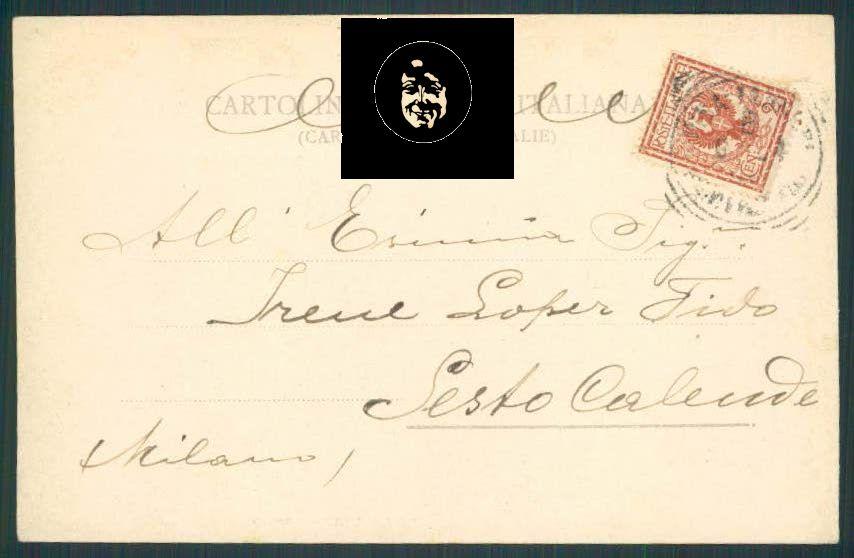 CARTOLIN ITALIANA
(CAR ALIE)
POSTE ITALIANE
All' Esimia Sig.
Irene Loper Fido
Sesto Calende
Milano,